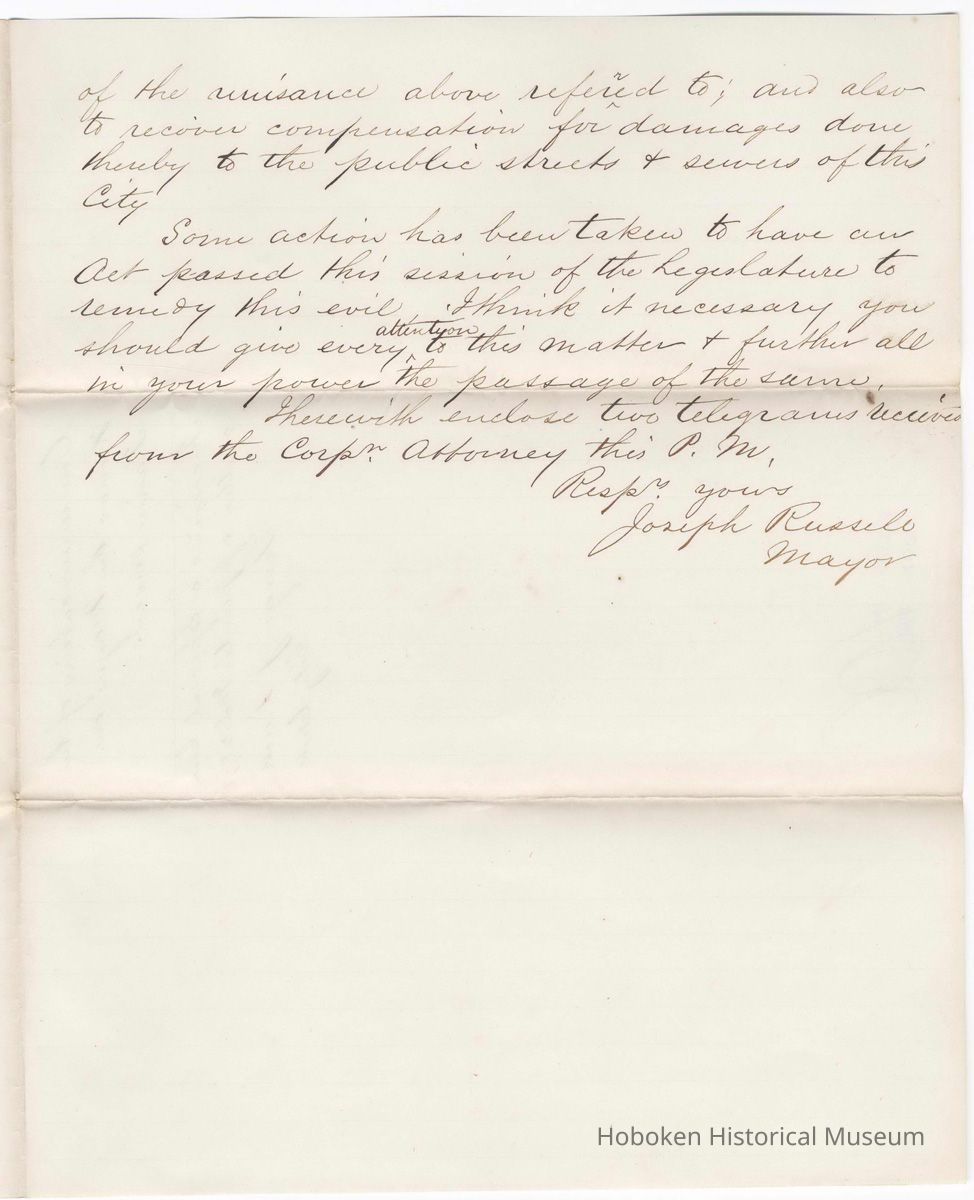 of the nuisance above referred to; and also
to recover compensation for damages done
thereby to the public streets & sewers of this
City
Some action has been taken to have an
Act passed this session of the Legislature to
remedy this evil. I think it necessary you
attention
should give every to this matter & further all
in your power the passage of the same.
I herewith enclose two telegrams received
from the Corpn. Attorney this P. M.
Respy. yours
Joseph Russell
Mayor
Hoboken Historical Museum